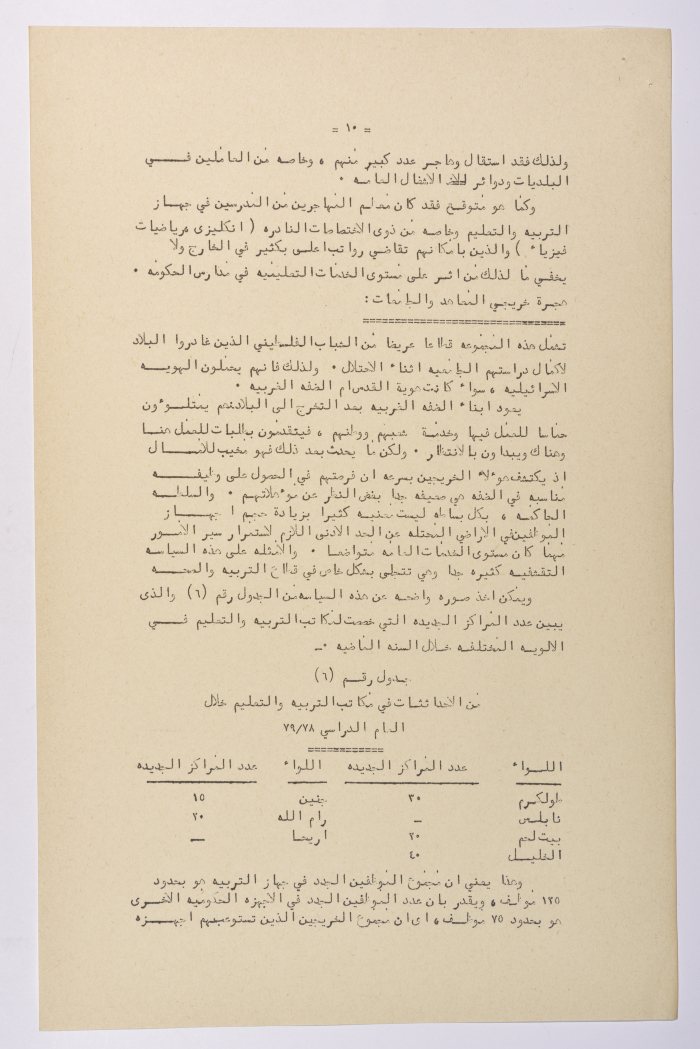 = ١٠ =
ولذلك فقد استقال وهاجر عدد كبير منهم ، وخاصه من العاملين فـــي
البلديات ودوائر الاشغال العامه ٠
وكما هو متوقع فقد كان معظم المهاجرين من المدرسين في جهـاز
التربيه والتعليم وخاصه من ذوى الاختصاصات النادره ( انكليزى ، رياضيات
فيزياء ) والذين بامكانهم تقاضي رواتب اعلى بكثير في الخارج ولا
يخفي ما لذلك من اثر على مستوى الخدمات التعليميه في مدارس الحكومه ٠
هجرة خريجي المعاهد والجامعات :
تشمل هذه المجموعه قطاعا عريضا من الشباب الفلسطيني الذين غادروا البلاد
لاكمال دراستهم الجامعيه اثناء الاحتلال ٠ ولذلك فانهم يحملون الهويـه
الاسرائيليه ، سواء كانت هوية القدس ام الضفه الغربيه ٠
يعود ابناء الضفه الغربيه بعد التخرج الى البلاد وهم يمتلـوءون
حماسا للعمل فيها وخدمـة شعبهم ووطنهم ، فيتقدمون بطلبات للعمل هنـا
وهناك ويبدأون بالانتظار ٠ ولكن ما يحدث بعد ذلك فهو مخيب للامـــال
اذ يكتشف هوءلاء الخريجين بسرعه ان فرصتهم في الحصول على وظيفـــه
مناسبه في الضفه هي ضعيفه جدا بغض النظر عن موءهلاتهم ٠ والسلطــه
الحاكمه ، بكل بساطه ليست معنيه كثيرا بزيادة حجم اجهــــاز
الموظفين في الاراضي المحتله عن الحد الادنى اللازم لاستمرار سير الامــور
مهما كان مستوى الخدمات العامه متواضعا ٠ والامثله على هذه السياسه
التقشفيه كثيره جدا وهي تتجلى بشكل خاص في قطاع التربيه والصحـــه
ويمكن اخذ صوره واضحه عن هذه السياسه من الجدول رقم (٦) والذى
يبين عدد المراكز الجديده التي خصصت لمكاتب التربيه والتعليم فــــي
الالويـه المختلفه خــلال السنه الماضيه ٠ــ
جدول رقــم (٦)
من الاحداثات في مكاتب التربيه والتعليم خلال
العام الدراسي ٧٩/٧٨
اللــواء عدد المراكز الجديده اللواء عدد المراكز الجديده
طولكرم ٣٠ جنين ١٥
نابلس ــ رام الله ٢٠
بيت لحم ٢٠ اريحا ــ
الخليــل ٤٠
وهذا يعني ان مجموع الموظفين الجدد في جهاز التربيه هو بحدود
١٢٥ موظف ، ويقدر بان عدد الموظفين الجدد في الاجهزه الحكوميه الاخرى
هو بحدود ٧٥ موظف ، اى ان مجموع الخريجين الذين تستوعبهم اجهــزه